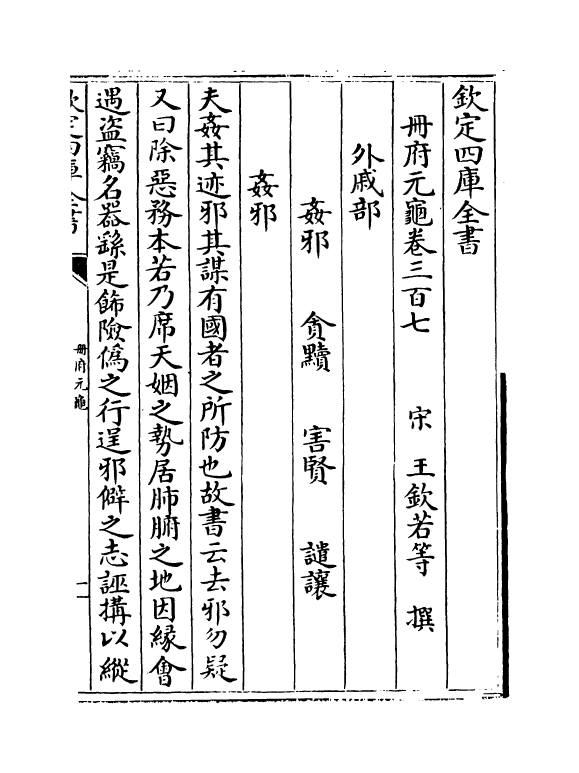 欽定四庫全書
冊府元龜卷三百七　宋　王欽若等　撰
外戚部
姦邪　貪黷　害賢　譴讓
姦邪
夫姦其迹邪其謀有國者之所防也故書云去邪勿疑
又曰除惡務本若乃席天姻之勢居肺腑之地因緣會
遇盜竊名器繇是飾險偽之行逞邪僻之志誣搆以縱
欽定四庫全書
冊府元龜
一